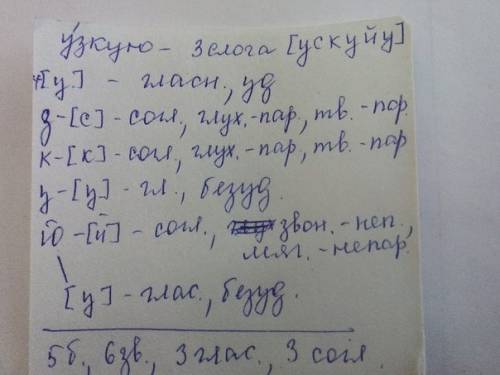 у́зкую - 3 слога [ускуйу]
[у] - гласн., уд
з-[с] - согл., глух.-пар., тв.-пар.
к-[к] - согл., глух.-пар, тв.-пар
у-[у] - гл., безуд.
ю-[й] - согл., звон.-неп.,
мяг.-непар.
[у] - глас., безуд.
5б., 6зв., 3глас., 3 согл.